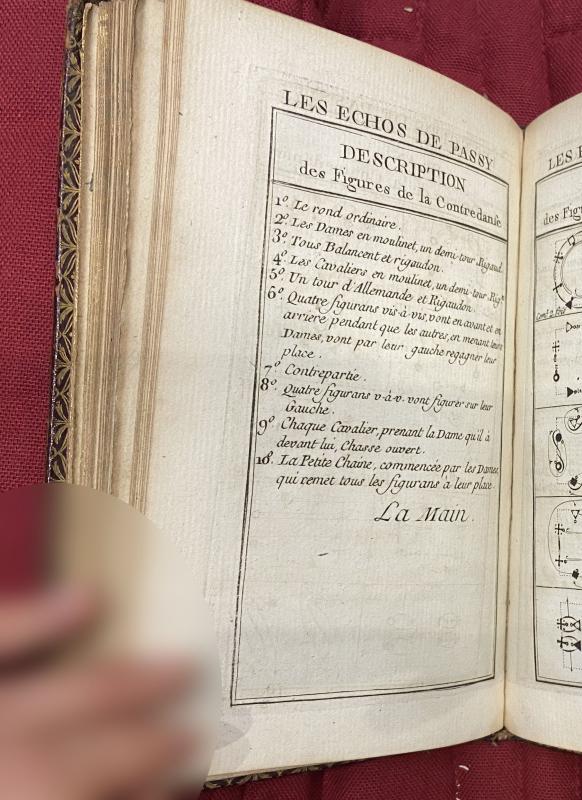 LES ECHOS DE PASSY
DESCRIPTION
des Figures de la Contredanse
1.º Le rond ordinaire.
2.º Les Dames en moulinet, un demi-tour Rigaud.
3.º Tous Balancent et rigaudon.
4.º Les Cavaliers en moulinet, un demi-tour Rig.on
5.º Un tour d'Allemande et Rigaudon.
6.º Quatre figurans vis-à-vis, vont en avant et en
arriere pendant que les autres, en menant leurs
Dames, vont par leur gauche regagner leur
place.
7.º Contrepartie.
8.º Quatre figurans v-à-v. vont figurer sur leur
Gauche.
9.º Chaque Cavalier, prenant la Dame qu'il à
devant lui, Chasse ouvert.
10.º La Petite Chaine, commencée par les Dames
qui remet tous les figurans à leur place.
La Main.
LES
des Fig